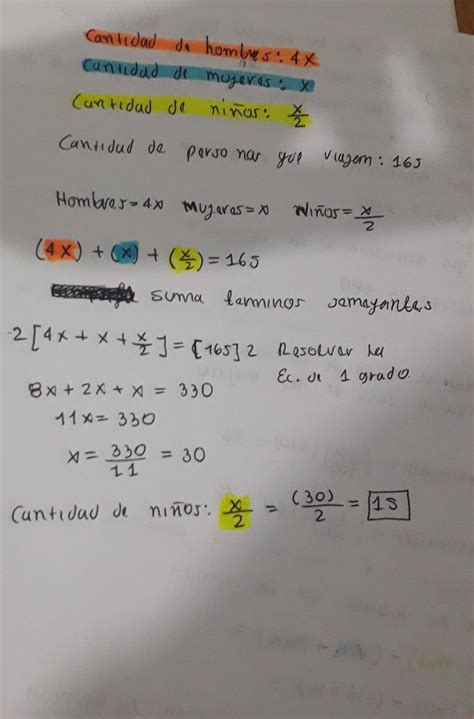 Cantidad de hombres: 4x
Cantidad de mujeres: x
Cantidad de niños: x/2
Cantidad de personas que viajan: 165
Hombres=4x Mujeres=x Niños=x/2
(4x)+(x)+(x/2)=165
suma terminos semejantes
2[4x+x+x/2]=[165]2 Resolver la
Ec. de 1 grado.
8x+2x+x=330
11x=330
x=330/11=30
Cantidad de niños: x/2=(30)/2=15